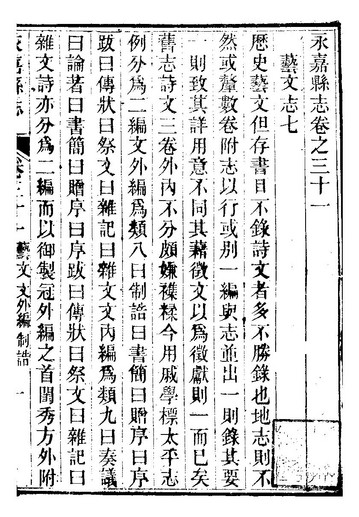 永嘉縣志卷之三十一
藝文志七
歷史藝文但存書目不錄詩文者多不勝錄也地志則不
然或釐數卷附志以行或別一編與志並出一則錄其要
一則致其詳用意不同其藉徵文以爲徵獻則一而已矣
舊志詩文三卷外內不分頗嫌襍糅今用戚學標太平志
例分爲二編文外編爲類八曰制誥曰書簡曰贈序曰序
跋曰傳狀曰祭文曰雜記曰雜文文內編爲類九曰奏議
曰論著曰書簡曰贈序曰序跋曰傳狀曰祭文曰雜記曰
雜文詩亦分爲二編而以御製冠外編之首閨秀方外附
永嘉縣志 卷三十一 藝文 文外編 制誥 一